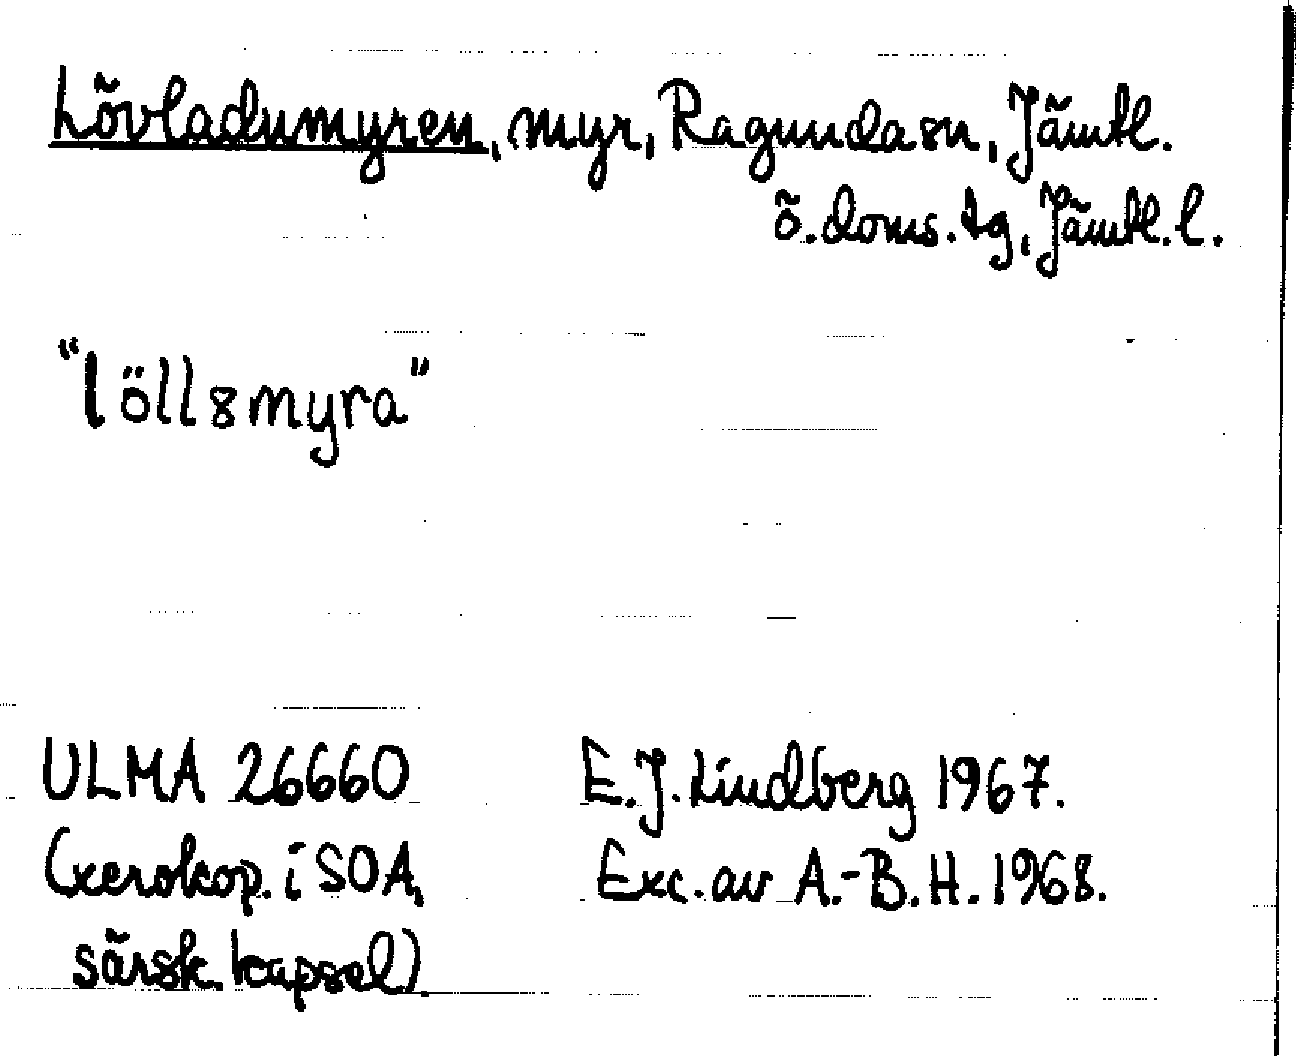 Lövladumyren, myr, Ragunda sn, Jämtl.
ö. doms. tg, Jämtl. l.
"löll8myra"
ULMA 26660 E.J. Lindberg 1967.
(xerokop. i SOA, Exc. av A.-B. H. 1968.
särsk. kapsel)